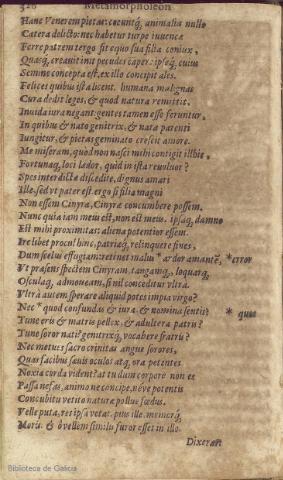 326 Metamorpholeon
Hanc Venerem pietas: coeuntq́; animalia nullo
Cætera delicto: nec habetur turpe iuuencæ
Ferre patrem tergo. fit equo sua filia coniux,
Quasq́; creauit init pecudes caper: ipsaq́;, cuius
Semine concepta est, ex illo concipit ales.
Felices quibus ista licent. humana malignas
Cura dedit leges, & quod natura remittit.
Inuida iura negant: gentes tamen esse feruntur,
In quibus & nato genitrix, & nata parenti
Iungitur, & pietas geminato crescit amore.
Me miseram, quod non nasci mihi contigit illhic,
Fortunaq́; loci lædor. quid in ista reuoluor?
Spes interdictæ discedite. dignus amari
Ille, sed vt pater est. ergo si filia magni
Non essem Cinyræ, Cinyræ concumbere possem.
Nunc quia iam meus est, non est meus. ipsaq́; damno
Est mihi proximitas: aliena potentior essem.
Ire libet procul hinc, patriæq́; relinquere fines,
Dum scelus effugiam: retinet malus * ardor amantẽ, * error
Vt præsens spectem Cinyram, tangamq́;, loquarq́;,
Osculaq́; admoueam, si nil conceditur vltra.
Vltra autem sperare aliquid potes impia virgo?
Nec * quot confundis & iura & nomina sentis? * quod
Tune eris & matris pellex, & adultera patris?
Tune soror nati? genitrixq́; vocabere fratris?
Nec metues sacro crinitas angue sorores,
Quas facibus sæuis oculos atq; ora petentes
Noxia corda vident? at tu dum corpore non es
Passa nefas, animo ne concipe. néve potentis
Concubitu vetito naturæ pollue fœdus.
Velle puta, res ipsa vetat. pius ille, memorq́;
Moris. & ô vellem similis furor esset in illo.
Dixerat
Biblioteca de Galicia